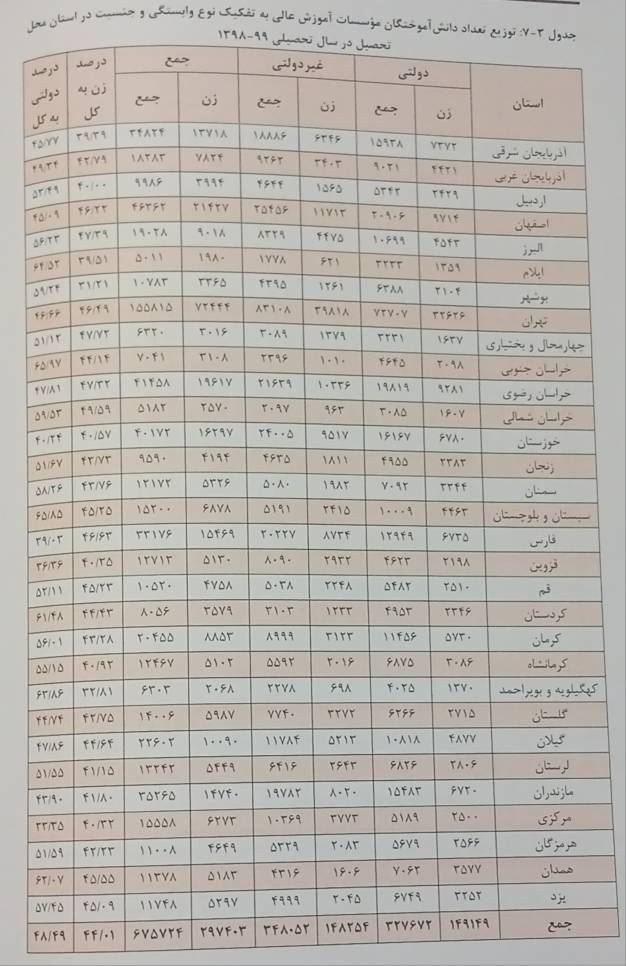 جدول ۲-۷: توزیع تعداد دانش‌آموختگان مؤسسات آموزش عالی به تفکیک نوع وابستگی و جنسیت در استان محل
تحصیل در سال تحصیلی ۹۹-۱۳۹۸
استان دولتی غیردولتی جمع درصد زن به کل درصد دولتی به کل
زن جمع زن جمع زن جمع
آذربایجان شرقی ۷۳۷۲ ۱۵۹۳۸ ۶۳۴۶ ۱۸۸۸۶ ۱۳۷۱۸ ۳۴۸۲۴ ۳۹/۳۹ ۴۵/۷۷
آذربایجان غربی ۴۴۲۱ ۹۰۲۱ ۳۴۰۳ ۹۲۶۲ ۷۸۲۴ ۱۸۲۸۳ ۴۲/۷۹ ۴۹/۳۴
اردبیل ۲۴۲۹ ۵۳۴۲ ۱۵۶۵ ۴۶۴۴ ۳۹۹۴ ۹۹۸۶ ۴۰/۰۰ ۵۳/۴۹
اصفهان ۹۷۱۴ ۲۰۹۰۶ ۱۱۷۱۳ ۲۵۴۵۶ ۲۱۴۲۷ ۴۶۳۶۲ ۴۶/۲۲ ۴۵/۰۹
البرز ۴۵۴۳ ۱۰۶۹۹ ۴۴۷۵ ۸۳۲۹ ۹۰۱۸ ۱۹۰۲۸ ۴۷/۳۹ ۵۶/۲۳
ایلام ۱۳۵۹ ۳۲۳۳ ۶۲۱ ۱۷۷۸ ۱۹۸۰ ۵۰۱۱ ۳۹/۵۱ ۶۴/۵۲
بوشهر ۲۱۰۴ ۶۳۸۸ ۱۲۶۱ ۴۳۹۵ ۳۳۶۵ ۱۰۷۸۳ ۳۱/۲۱ ۵۹/۲۴
تهران ۳۲۶۲۶ ۷۲۷۰۷ ۳۹۸۱۸ ۸۳۱۰۸ ۷۲۴۴۴ ۱۵۵۸۱۵ ۴۶/۴۹ ۴۶/۶۶
چهارمحال و بختیاری ۱۶۳۷ ۳۲۳۱ ۱۳۷۹ ۳۰۸۹ ۳۰۱۶ ۶۳۲۰ ۴۷/۷۲ ۵۱/۱۲
خراسان جنوبی ۲۰۹۸ ۴۶۴۵ ۱۰۱۰ ۲۳۹۶ ۳۱۰۸ ۷۰۴۱ ۴۴/۱۴ ۶۵/۹۷
خراسان رضوی ۹۲۸۱ ۱۹۸۱۹ ۱۰۳۳۶ ۲۱۶۳۹ ۱۹۶۱۷ ۴۱۴۵۸ ۴۷/۳۲ ۴۷/۸۱
خراسان شمالی ۱۶۰۷ ۳۰۸۵ ۹۶۳ ۲۰۹۷ ۲۵۷۰ ۵۱۸۲ ۴۹/۵۹ ۵۹/۵۳
خوزستان ۶۷۸۰ ۱۶۱۶۷ ۹۵۱۷ ۲۴۰۰۵ ۱۶۲۹۷ ۴۰۱۷۲ ۴۰/۵۷ ۴۰/۲۴
زنجان ۲۳۸۳ ۴۹۵۵ ۱۸۱۱ ۴۶۳۵ ۴۱۹۴ ۹۵۹۰ ۴۳/۷۳ ۵۱/۶۷
سمنان ۳۳۴۴ ۷۰۹۲ ۱۹۸۲ ۵۰۸۰ ۵۳۲۶ ۱۲۱۷۲ ۴۳/۷۶ ۵۸/۲۶
سیستان و بلوچستان ۴۴۶۳ ۱۰۰۰۹ ۲۴۱۵ ۵۱۹۱ ۶۸۷۸ ۱۵۲۰۰ ۴۵/۲۵ ۶۵/۸۵
فارس ۶۷۳۵ ۱۲۹۴۹ ۸۷۳۴ ۲۰۲۲۷ ۱۵۴۶۹ ۳۳۱۷۶ ۴۶/۶۳ ۳۹/۰۳
قزوین ۲۱۹۸ ۴۶۲۳ ۲۹۳۲ ۸۰۹۰ ۵۱۳۰ ۱۲۷۱۳ ۴۰/۳۵ ۳۶/۳۶
قم ۲۵۱۰ ۵۴۸۲ ۲۲۴۸ ۵۰۳۸ ۴۷۵۸ ۱۰۵۲۰ ۴۵/۲۳ ۵۲/۱۱
کردستان ۲۳۴۶ ۴۹۵۳ ۱۲۳۳ ۳۱۰۳ ۳۵۷۹ ۸۰۵۶ ۴۴/۴۳ ۶۱/۴۸
کرمان ۵۷۳۰ ۱۱۴۵۶ ۳۱۲۳ ۸۹۹۹ ۸۸۵۳ ۲۰۴۵۵ ۴۳/۲۸ ۵۶/۰۱
کرمانشاه ۳۰۸۶ ۶۸۷۵ ۲۰۱۶ ۵۵۹۲ ۵۱۰۲ ۱۲۴۶۷ ۴۰/۹۲ ۵۵/۱۵
کهگیلویه و بویراحمد ۱۳۷۰ ۴۰۲۵ ۶۹۸ ۲۲۷۸ ۲۰۶۸ ۶۳۰۳ ۳۲/۸۱ ۶۳/۸۶
گلستان ۲۷۱۵ ۶۲۶۶ ۳۲۷۲ ۷۷۴۰ ۵۹۸۷ ۱۴۰۰۶ ۴۲/۷۵ ۴۴/۷۴
گیلان ۴۸۷۷ ۱۰۸۱۸ ۵۲۱۳ ۱۱۷۸۴ ۱۰۰۹۰ ۲۲۶۰۲ ۴۴/۶۴ ۴۷/۸۶
لرستان ۲۸۰۶ ۶۸۲۶ ۲۶۴۳ ۶۴۱۶ ۵۴۴۹ ۱۳۲۴۲ ۴۱/۱۵ ۵۱/۵۵
مازندران ۶۷۲۰ ۱۵۴۸۳ ۸۰۲۰ ۱۹۷۸۲ ۱۴۷۴۰ ۳۵۲۶۵ ۴۱/۸۰ ۴۳/۹۰
مرکزی ۲۵۰۰ ۵۱۸۹ ۳۷۷۳ ۱۰۳۶۹ ۶۲۷۳ ۱۵۵۵۸ ۴۰/۳۲ ۳۳/۳۵
هرمزگان ۲۵۶۶ ۵۶۷۹ ۲۰۸۳ ۵۳۲۹ ۴۶۴۹ ۱۱۰۰۸ ۴۲/۲۳ ۵۱/۵۹
همدان ۳۵۷۷ ۷۰۶۲ ۱۶۰۶ ۴۳۱۶ ۵۱۸۳ ۱۱۳۷۸ ۴۵/۵۵ ۶۲/۰۷
یزد ۳۲۵۲ ۶۷۴۹ ۲۰۴۵ ۴۹۹۹ ۵۲۹۷ ۱۱۷۴۸ ۴۵/۰۹ ۵۷/۴۵
جمع ۱۴۹۱۴۹ ۳۲۷۶۷۲ ۱۴۸۲۵۴ ۳۴۸۰۵۲ ۲۹۷۴۰۳ ۶۷۵۷۲۴ ۴۴/۰۱ ۴۸/۴۹